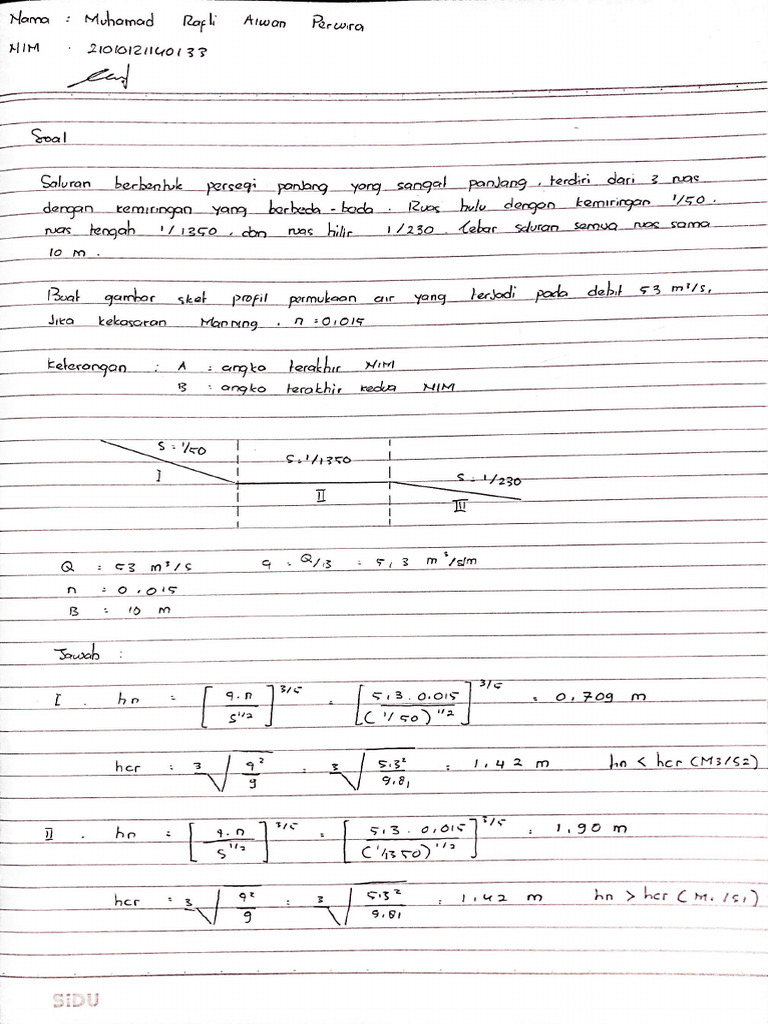 Nama : Muhamad Rafli Alwan Perwira
NIM . 21010121140133
Soal
Saluran berbentuk persegi panjang yang sangat panjang, terdiri dari 3 ruas
dengan kemiringan yang berbeda-beda. Ruas hulu dengan kemiringan 1/50.
ruas tengah 1/1350, dan ruas hilir 1/230. lebar saluran semua ruas sama
10 m.
Buat gambar sket profil permukaan air yang terjadi pada debit 53 m³/s,
Jika kekasaran Manning. n = 0,015
Keterangan : A : angka terakhir NIM
B : angka terakhir kedua NIM
S = 1/50
S = 1/1350
S = 1/230
I
II
III
Q = 53 m³/s q = Q/B = 5,3 m³/s/m
n = 0,015
B = 10 m
Jawab :
I. hn = [q.n / S^1/2]^3/5 = [5,3 . 0,015 / (1/50)^1/2]^3/5 = 0,709 m
hcr = ³√(q²/g) = ³√(5,3²/9,81) = 1,42 m hn < hcr (M3/S2)
II. hn = [q.n / S^1/2]^3/5 = [5,3 . 0,015 / (1/1350)^1/2]^3/5 = 1,90 m
hcr = ³√(q²/g) = ³√(5,3²/9,81) = 1,42 m hn > hcr (M1/S1)
SiDU